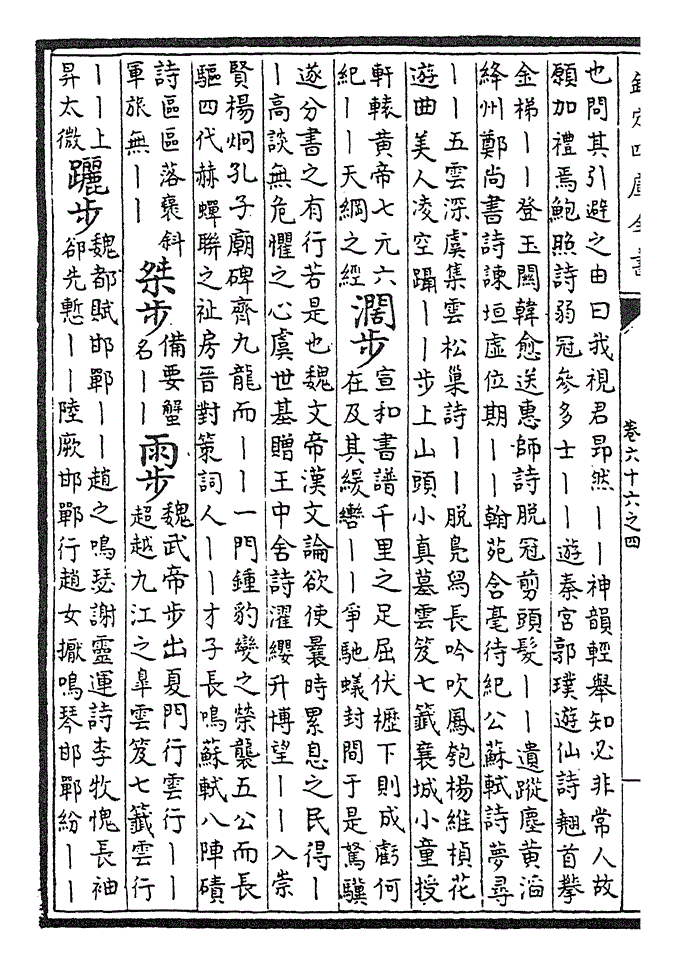 欽定四庫全書
卷六十六之四
一
也問其引避之由曰我視君昂然丨丨神韻輕舉知必非常人故
願加禮焉鮑照詩弱冠參多士丨丨遊秦宮郭璞遊仙詩翹首擧
金梯丨丨登玉闕韓愈送惠師詩脫冠剪頭髮丨丨遺蹤塵黃滔
絳州鄭尚書詩諫垣虛位期丨丨翰苑含毫待紀公蘇軾詩夢尋
丨丨五雲深虞集雲松巢詩丨丨脫鳧舄長吟吹鳳匏楊維楨花
遊曲美人凌空躡丨丨步上山頭小真墓雲笈七籤襄城小童授
軒轅黃帝七元六
紀丨丨天綱之經
濶步
宣和書譜千里之足屈伏櫪下則成虧何
在及其緩轡丨丨爭馳蟻封間于是駑驥
遂分書之有行若是也魏文帝漢文論欲使曩時累息之民得丨
丨高談無危懼之心虞世基贈王中舍詩濯纓升博望丨丨入崇
賢楊炯孔子廟碑齊九龍而丨丨一門鍾豹變之榮襲五公而長
驅四代赫蟬聯之祉房晉對策詞人丨丨才子長鳴蘇軾八陣磧
詩區區落褒斜
軍旅無丨丨
桀步
備要蟹
名丨丨
雨步
魏武帝步出夏門行雲行丨丨
超越九江之臯雲笈七籤雲行
丨丨上
昇太微
躧步
魏都賦邯鄲丨丨趙之鳴瑟謝靈運詩李牧愧長袖
卻先慙丨丨陸厥邯鄲行趙女擫鳴琴邯鄲紛丨丨